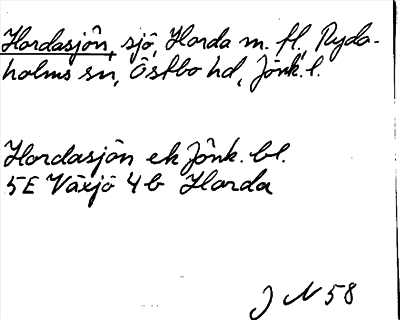 Hordasjön, sjö, Horda m. fl., Ryda-
holms sn, Östbo hd, Jönk. l.
Hordasjön ek Jönk. bl.
5E Växjö 4b Horda
J N 58